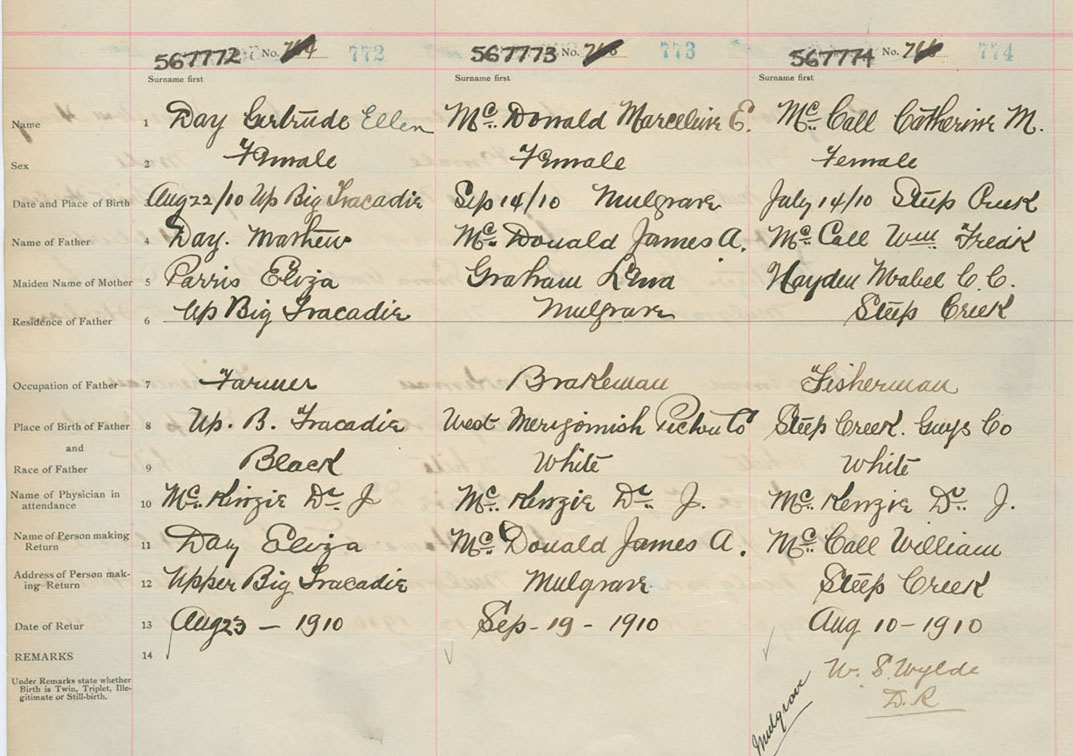 567772 No. 772 567773 No. 773 567774 No. 774
Surname first Surname first Surname first
Name 1 Day Gertrude Ellen Mc. Donald Marceline E. Mc. Call Catherine M.
Sex 2 Female Female Female
Date and Place of Birth 3 Aug 22/10 Up Big Tracadie Sep 14/10 Mulgrave July 14/10 Steep Creek
Name of Father 4 Day. Mathew Mc. Donald James A. Mc. Call Wm Fredk
Maiden Name of Mother 5 Parris Eliza Graham Lena Hayden Mabel C. C.
Residence of Father 6 Up Big Tracadie Mulgrave Steep Creek
Occupation of Father 7 Farmer Brakeman Fisherman
Place of Birth of Father 8 Up. B. Tracadie West Merigomish Pictou Co Steep Creek. Guys Co
and
Race of Father 9 Black White White
Name of Physician in
attendance 10 Mc. Kinzie Dr. J Mc. Kenzie Dr. J. Mc. Kenzie Dr. J.
Name of Person making
Return 11 Day Eliza Mc. Donald James A. Mc. Call William
Address of Person mak-
ing Return 12 Upper Big Tracadie Mulgrave Steep Creek
Date of Retur 13 Aug 23 – 1910 Sep - 19 - 1910 Aug 10 - 1910
REMARKS 14
Under Remarks state whether
Birth is Twin, Triplet, Ille-
gitimate or Still-birth.
W. S. Wylde
D. R
Mulgrave